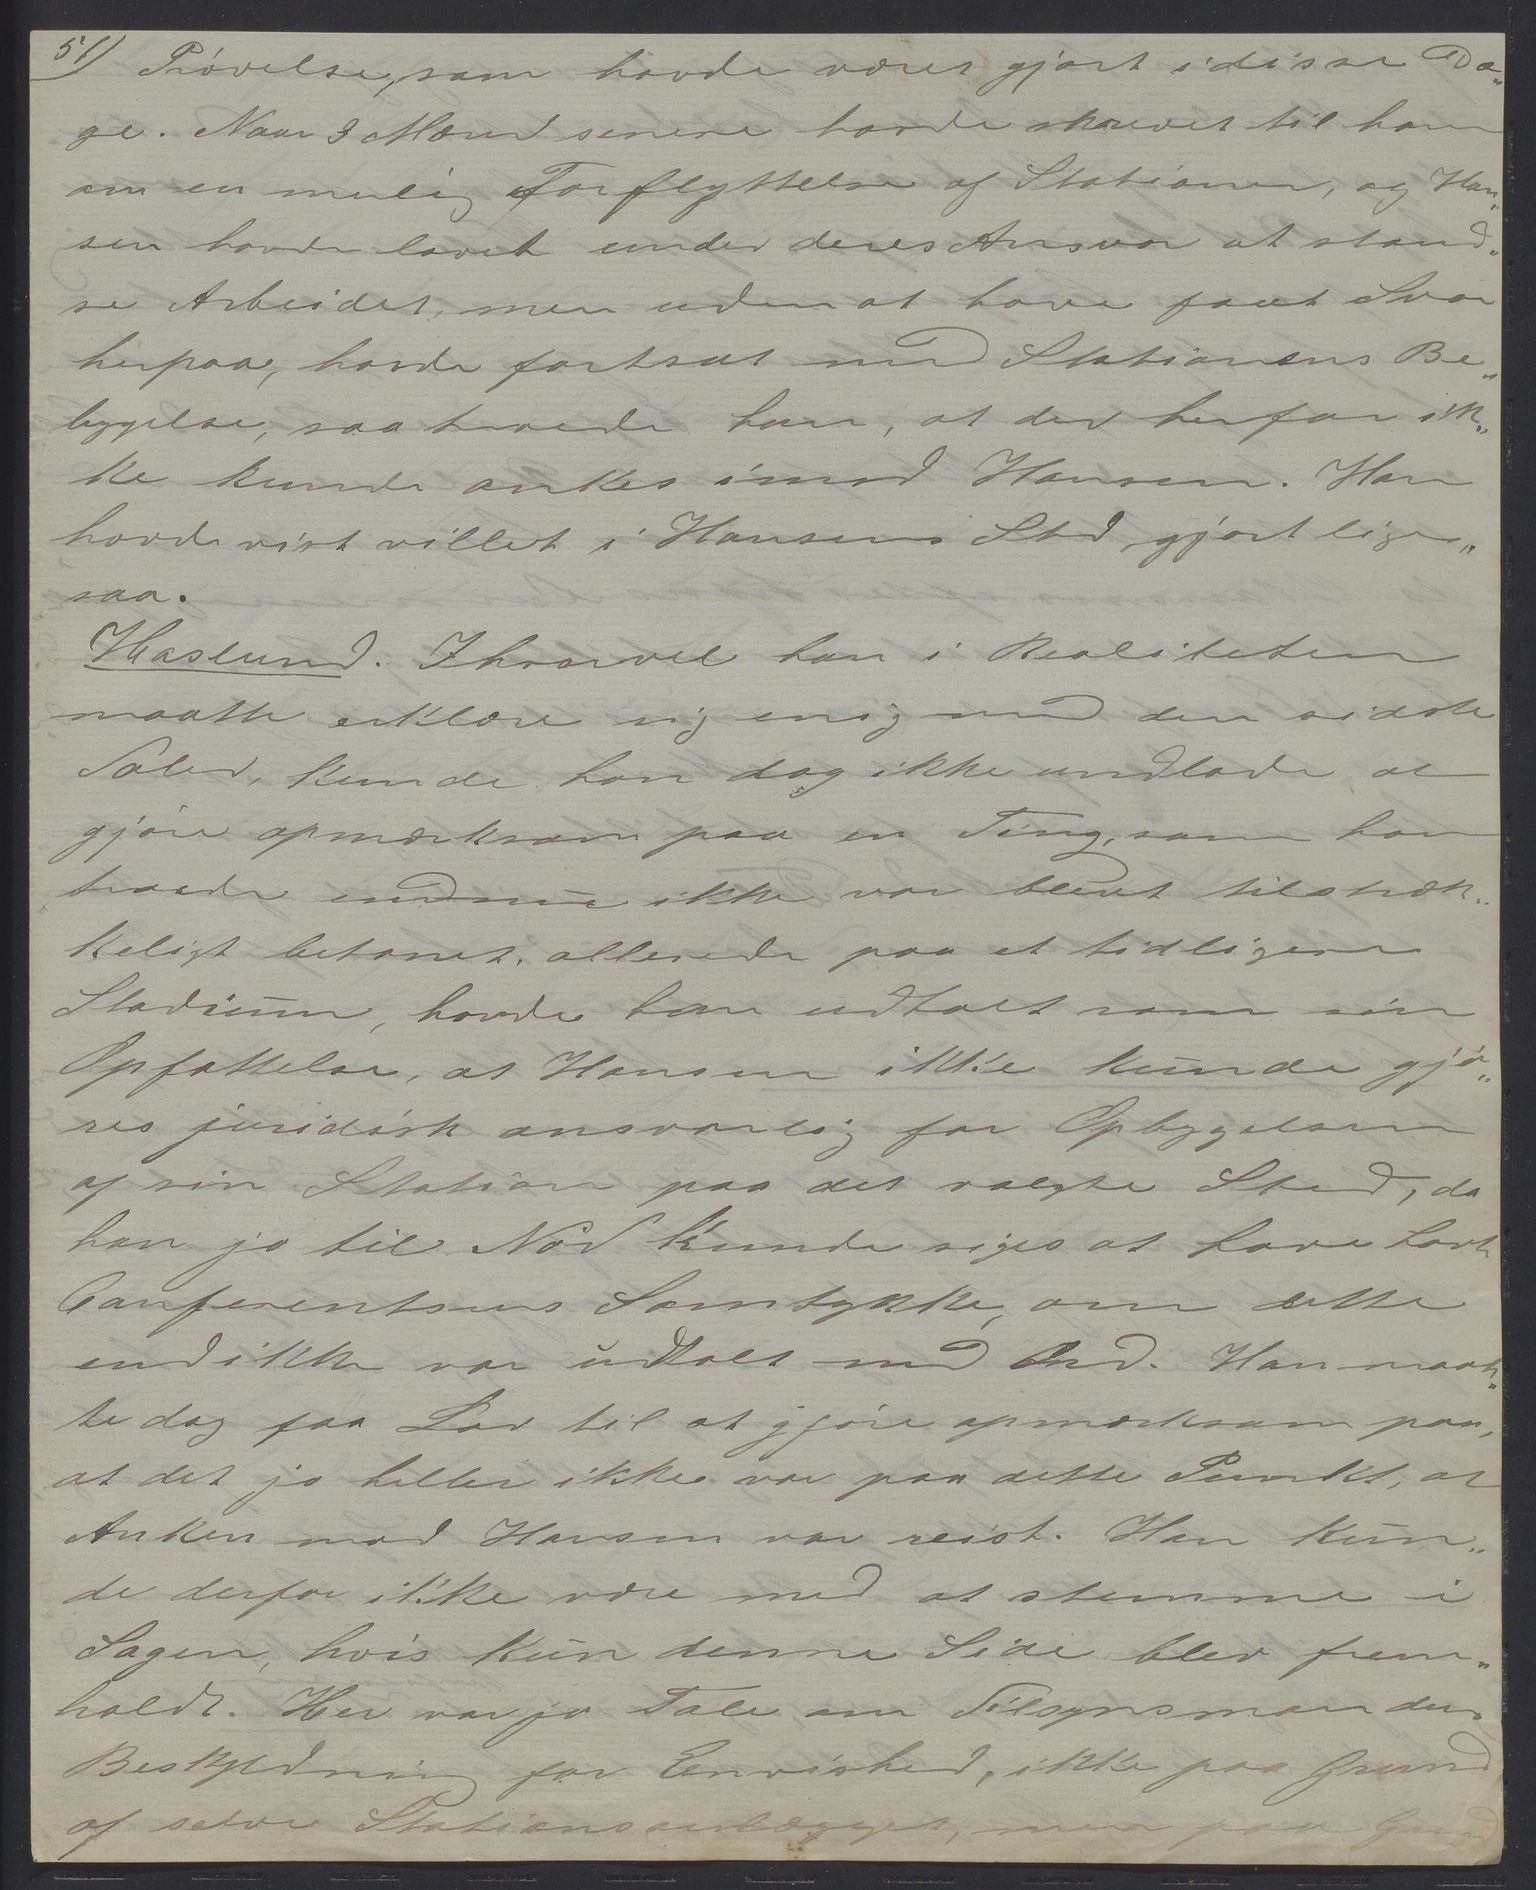 51) Prøvelse, som havde været gjort i disse Da„
ge. Naar 3 Mænd senere havde skrevet til ham
om en mulig Forflyttelse af Stationen, og Han„
sen havde lovet under deres Ansvar at stand„
se Arbeidet, men uden at have faaet Svar
herpaa, havde fortsat med Stationens Be„
bygelse, saa troede han, at der herfor ik„
ke kunde ankes imod Hansen. Han
havde vist villet i Hansens Sted gjort lige„
saa.
Haslund. Ihvorvel han i Realiteten
maatte erklære sig enig med den sidste
Taler, kunde han dog ikke undlade at
gjøre opmærksom paa en Ting, som han
troede endnu ikke var blevet tilstræk„
keligt betonet, allerede paa et tidligere
Stadium, havde han udtalt som sin
Opfattelse, at Hansen ikke kunde gjø„
res juridisk ansvarlig for Opbyggelsen
af sin Station paa det valgte Sted, da
han jo til Nød kunde siges at have havt
Conferentsens Samtykke, om dette
end ikke var udtalt med Ord. Han maat„
te dog faa Lov til at gjøre opmærksom paa,
at det jo heller ikke var paa dette Punkt, at
Anken mod Hansen var reist. Han kun„
de derfor ikke være med at stemme i
Sagen, hvis kun denne Side blev frem„
holdt. Her var jo Tale om Tilsynsmandens
Beskyldning for Envished, ikke paa Grund
af selve Stationsanlægget, men paa Grund